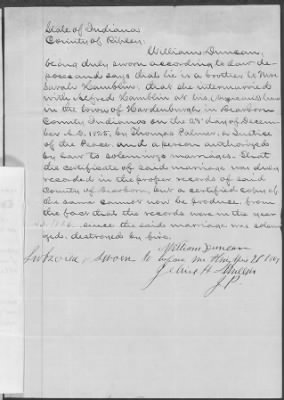 State of Indiana
County of Ripley
William Duncan,
being duly sworn according to law de-
poses and says that he is a brother to Mrs
Sarah Hamblin; that she intermarried
with Alfred Hamblin at his, residence
in the town of Hardenburgh in Dearborn
County Indiana on the 25 day of Decem-
ber A.D. 1825, by Thomas Palmer, a Justice
of the Peace, and a person authorized
by law to solemnize marriages. That
the certificate of said marriage was duly
recorded in the proper records of said
County of Dearborn, but a certified copy of
the same cannot now be produce, from
the fact that the records were in the year
since the said marriage was solem-
nized, destroyed by fire.
William Duncan
Subscribed & sworn to before me this, day
J.P.